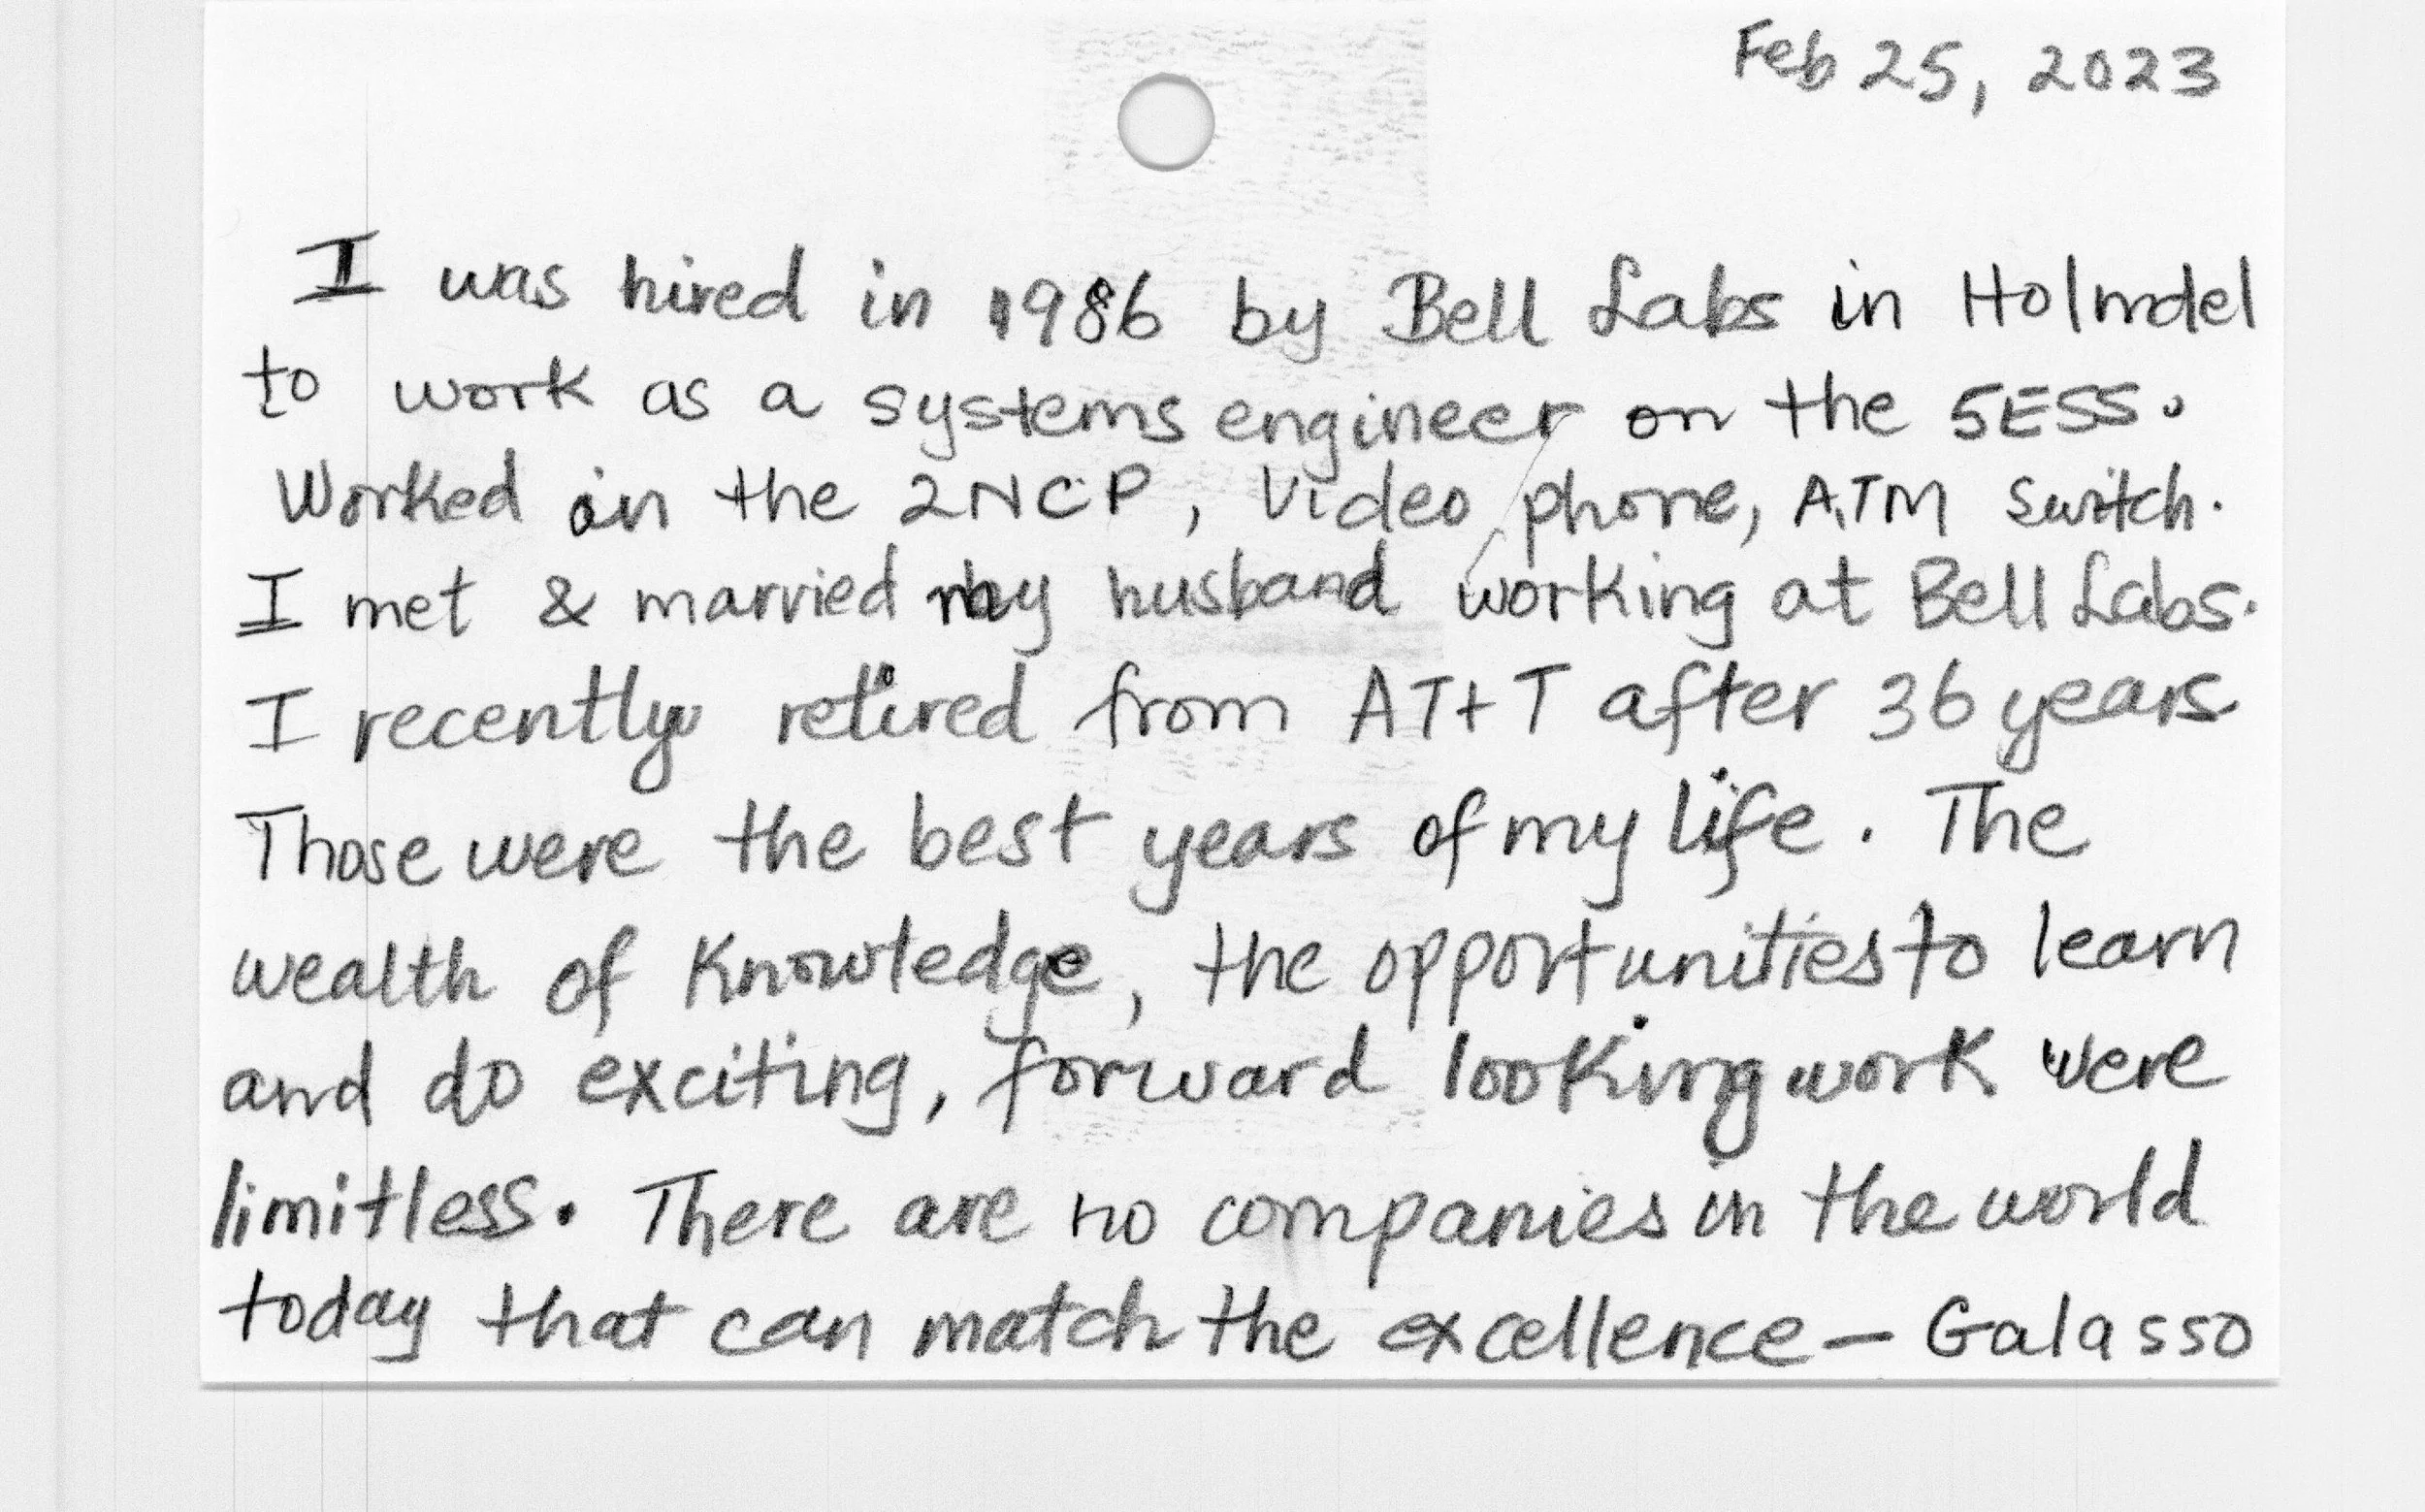 Feb 25, 2023
I was hired in 1986 by Bell Labs in Holmdel
to work as a systems engineer on the 5ESS.
Worked on the 2NCP, Video phone, ATM Switch.
I met & married my husband working at Bell Labs.
I recently retired from AT+T after 36 years.
Those were the best years of my life. The
wealth of Knowledge, the opportunities to learn
and do exciting, forward looking work were
limitless. There are no companies in the world
today that can match the excellence — Galasso